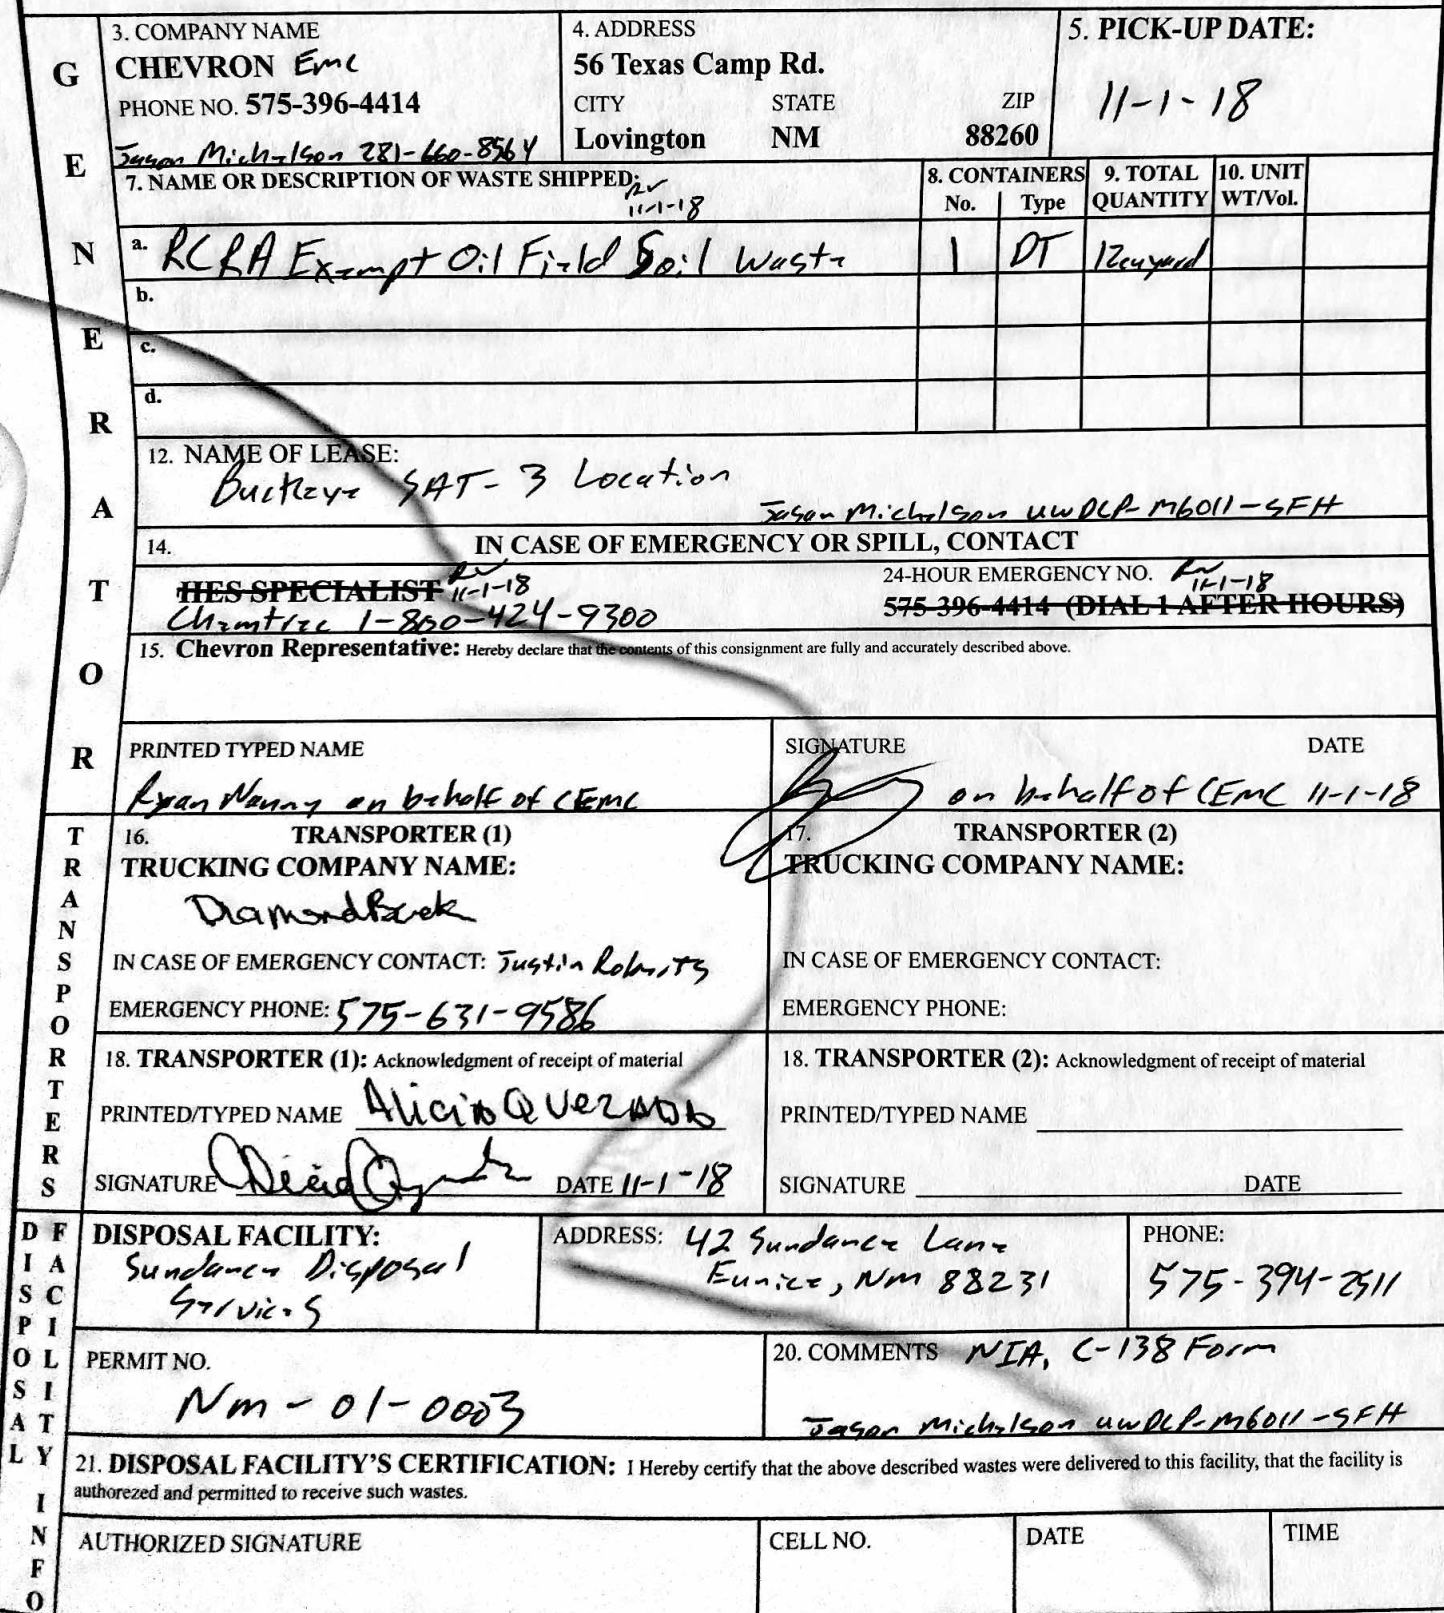 3. COMPANY NAME
CHEVRON Emc
PHONE NO. 575-396-4414
Jason Michelson 281-660-8564
4. ADDRESS
56 Texas Camp Rd.
CITY STATE ZIP
Lovington NM 88260
5. PICK-UP DATE:
11-1-18
GENERATOR
7. NAME OR DESCRIPTION OF WASTE SHIPPED:
11-1-18
8. CONTAINERS
No. Type
9. TOTAL QUANTITY
10. UNIT WT/Vol.
a. RCRA Exempt Oil Field Soil Waste 1 DT 12cuyard
b.
c.
d.
12. NAME OF LEASE:
Buckeye SAT-3 Location
Jason Michelson uwDCP-M6011-SFH
14. IN CASE OF EMERGENCY OR SPILL, CONTACT
HES SPECIALIST 11-1-18
Chemtrec 1-800-424-9300
24-HOUR EMERGENCY NO. 11-1-18
575-396-4414 (DIAL 1 AFTER HOURS)
15. Chevron Representative: Hereby declare that the contents of this consignment are fully and accurately described above.
PRINTED TYPED NAME
Ryan Nanny on behalf of CEMC
SIGNATURE DATE
on behalf of CEMC 11-1-18
TRANSPORTERS
16. TRANSPORTER (1)
TRUCKING COMPANY NAME:
DiamondBack
IN CASE OF EMERGENCY CONTACT: Justin Roberts
EMERGENCY PHONE: 575-631-9586
17. TRANSPORTER (2)
TRUCKING COMPANY NAME:
IN CASE OF EMERGENCY CONTACT:
EMERGENCY PHONE:
18. TRANSPORTER (1): Acknowledgment of receipt of material
PRINTED/TYPED NAME Alicia Quezada
SIGNATURE DATE 11-1-18
18. TRANSPORTER (2): Acknowledgment of receipt of material
PRINTED/TYPED NAME
SIGNATURE DATE
DISPOSAL
FACILITY INFO
DISPOSAL FACILITY:
Sundance Disposal
Services
ADDRESS: 42 Sundance Lane
Eunice, Nm 88231
PHONE:
575-394-2511
PERMIT NO.
Nm-01-0003
20. COMMENTS NIA, C-138 Form
Jason Michelson uwDCP-M6011-SFH
21. DISPOSAL FACILITY'S CERTIFICATION: I Hereby certify that the above described wastes were delivered to this facility, that the facility is
authorezed and permitted to receive such wastes.
AUTHORIZED SIGNATURE
CELL NO.
DATE
TIME